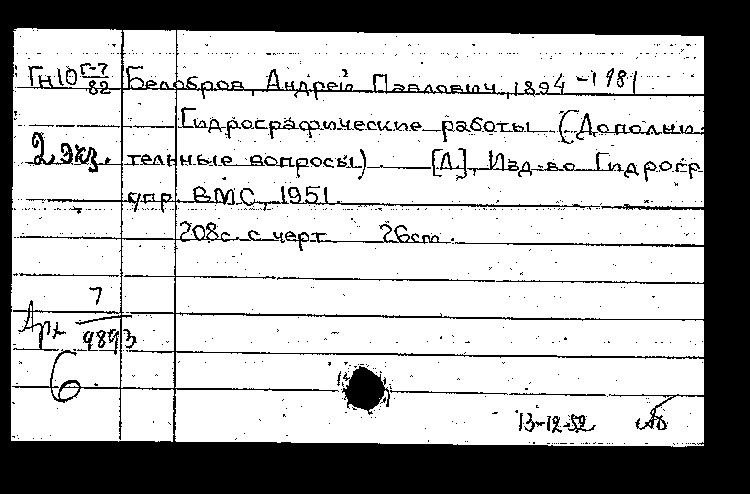 Гн10 Г-7/82 Белобров, Андрей Павлович, 1894-1981
Гидрографические работы (Дополни-
2 экз. тельные вопросы). [Л.], Изд-во Гидрогр
упр. ВМС, 1951.
208с. с черт. 26cm.
Арх 7/9893
6
13-12-52